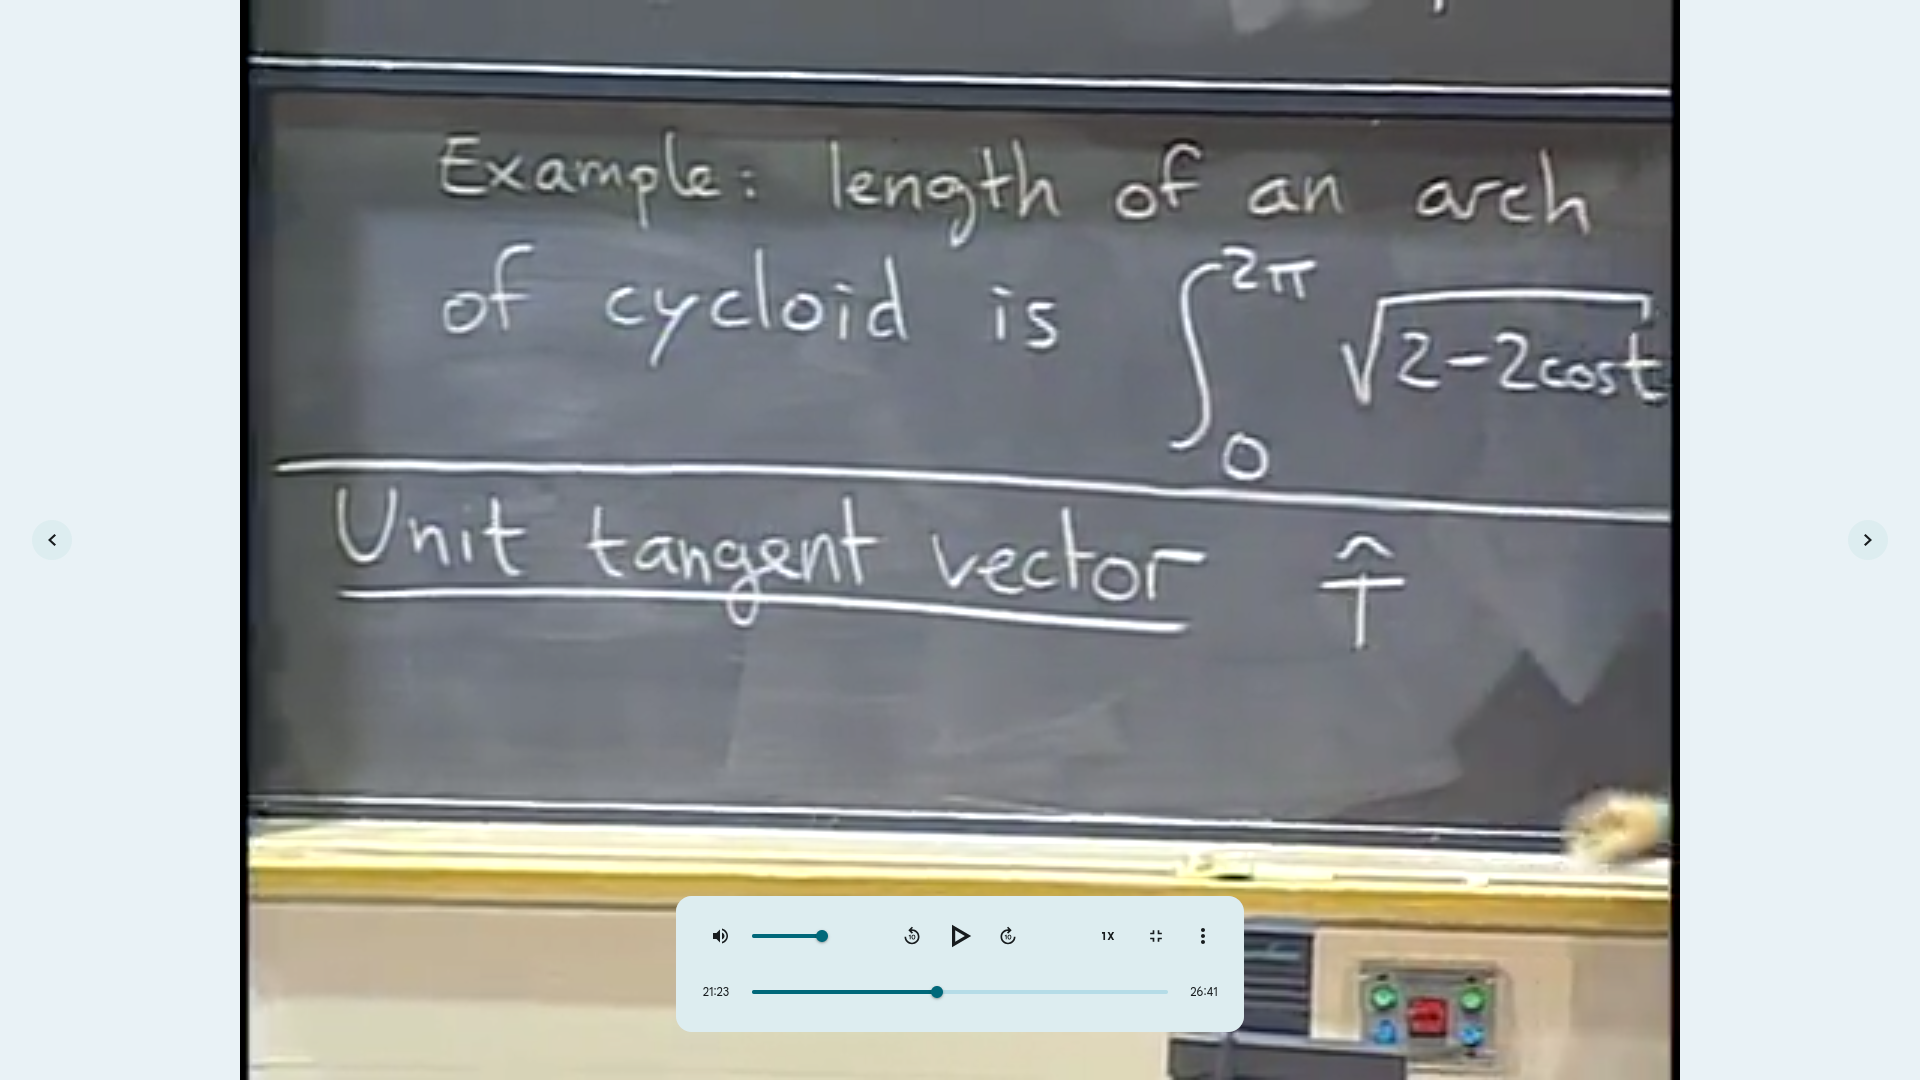 Example: length of an arch
of cycloid is ∫₀^2π √2-2cost
Unit tangent vector T̂
10
10
1X
21:23
26:41